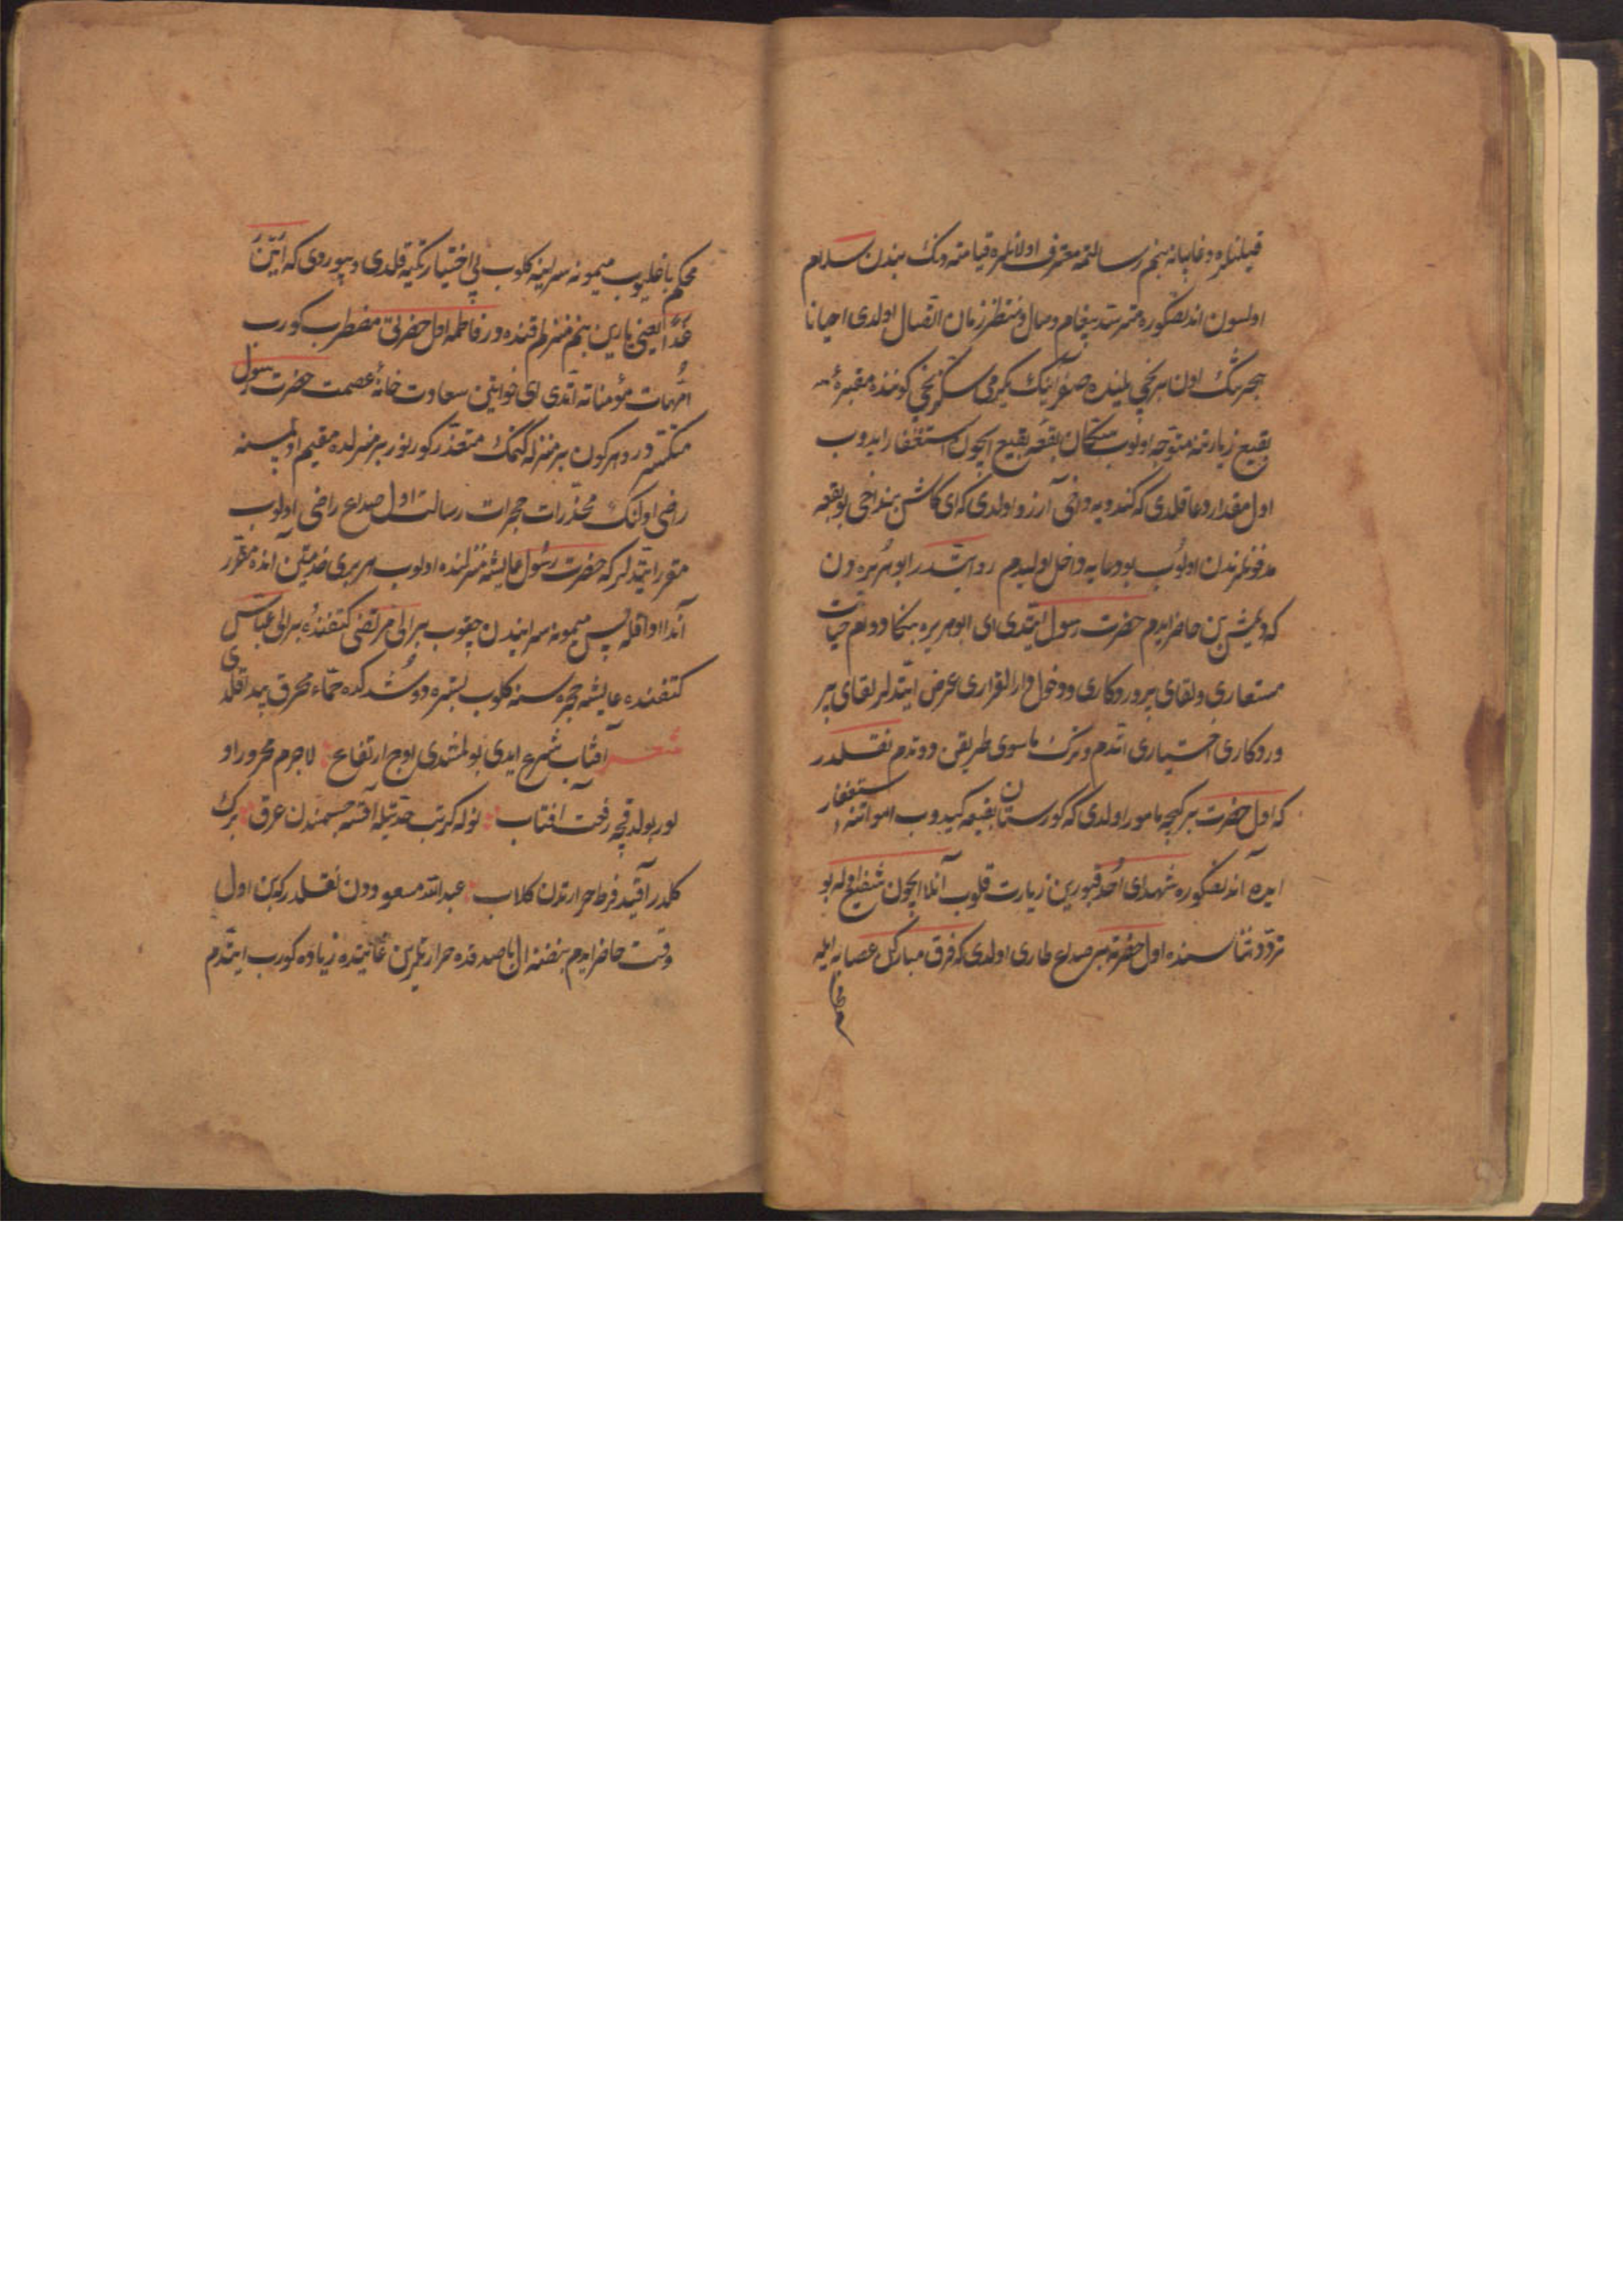 قیلنلره و غایبانه بنم رسالتمه معترف اولانلره قیامته دنك بندن سلام
اولسون اندنصکوره مترصد پیغام وصال و منتظر زمان اتصال اولدی احیانا
هجرتنك اون برنجی یلینده صفر آینك یکرمی سکزنجی کوننده مقبرهٔ
بقیع زیارتنه متوجه اولوب سکان بقعهٔ بقیع ایچون استغفار ایدوب
اول مقدار دعا قلدی که کندویه دخی آرزو اولدی که ای کاش بنداخی بو بقعه
مدفونلرندن اولوب بو دعایه داخل اولیدم روایتدر ابو هریره دن
که دیمیش بن حاضر ایدم حضرت رسول ایتدی ای ابو هریره بنکا دوام حیات
مستعاری و لقای پروردکاری و دخول دار القراری عرض ایتدلر لقای پر
وردکاری اختیاری اتدم و ترك ماسوی طریقن دوتدم نقلدر
که اول حضرت بر کیجه مامور اولدی که کورستان بقیعه کیدوب امواتنه استغفار
ایده آندنصکوره شهدای احد قبورین زیارت قلوب آنلار ایچون شفیع اوله بو
تردد اثناسنده اول حضرته بر صداع طاری اولدی که فرق مبارکن عصابه ایله
محکم
محکم باغلیوب میمونه سراینه کلوب بی اختیار تکیه قلدی و بیوردی که این انا
غدا یعنی یارین بنم منزلم قنده در فاطمه اول حضرتی مضطرب کورب
امهات مؤمناته اتدی ای خواتین سعادت خانهٔ عصمت حضرت رسول
منکسر در و هر کون بر منزله کتمك متعذر کورنور بر منزلده مقیم اولمسنه
راضی اولنك مخدرات حجرات رسالت اول صداع راضی اولوب
مقرر ایتدیلر که حضرت رسول عایشه منزلنده اولوب هر بری خدمتین انده مقرر
آندا اوافله پس میمونه سرایندن چقوب بر الی مرتضی کتفنده بر الی عباس
کتفنده عایشه حجره سنه کلوب بستره دوشدکده حماء محرق پیدا قلدی
شعر آفتاب شرع ایدی بولمشدی اوج ارتفاع لاجرم محرور او
لور بولدقچه رفعت افتاب نوله کر تب حدتیله آقسه جسمندن عرق برك
کلدر آقید فرط حرارتدن کلاب عبد الله مسعوددن نقلدر که بن اول
وقت حاضر ایدم نبضنه ال باصدقده حرارتلرین غایتده زیاده کورب ایتدم